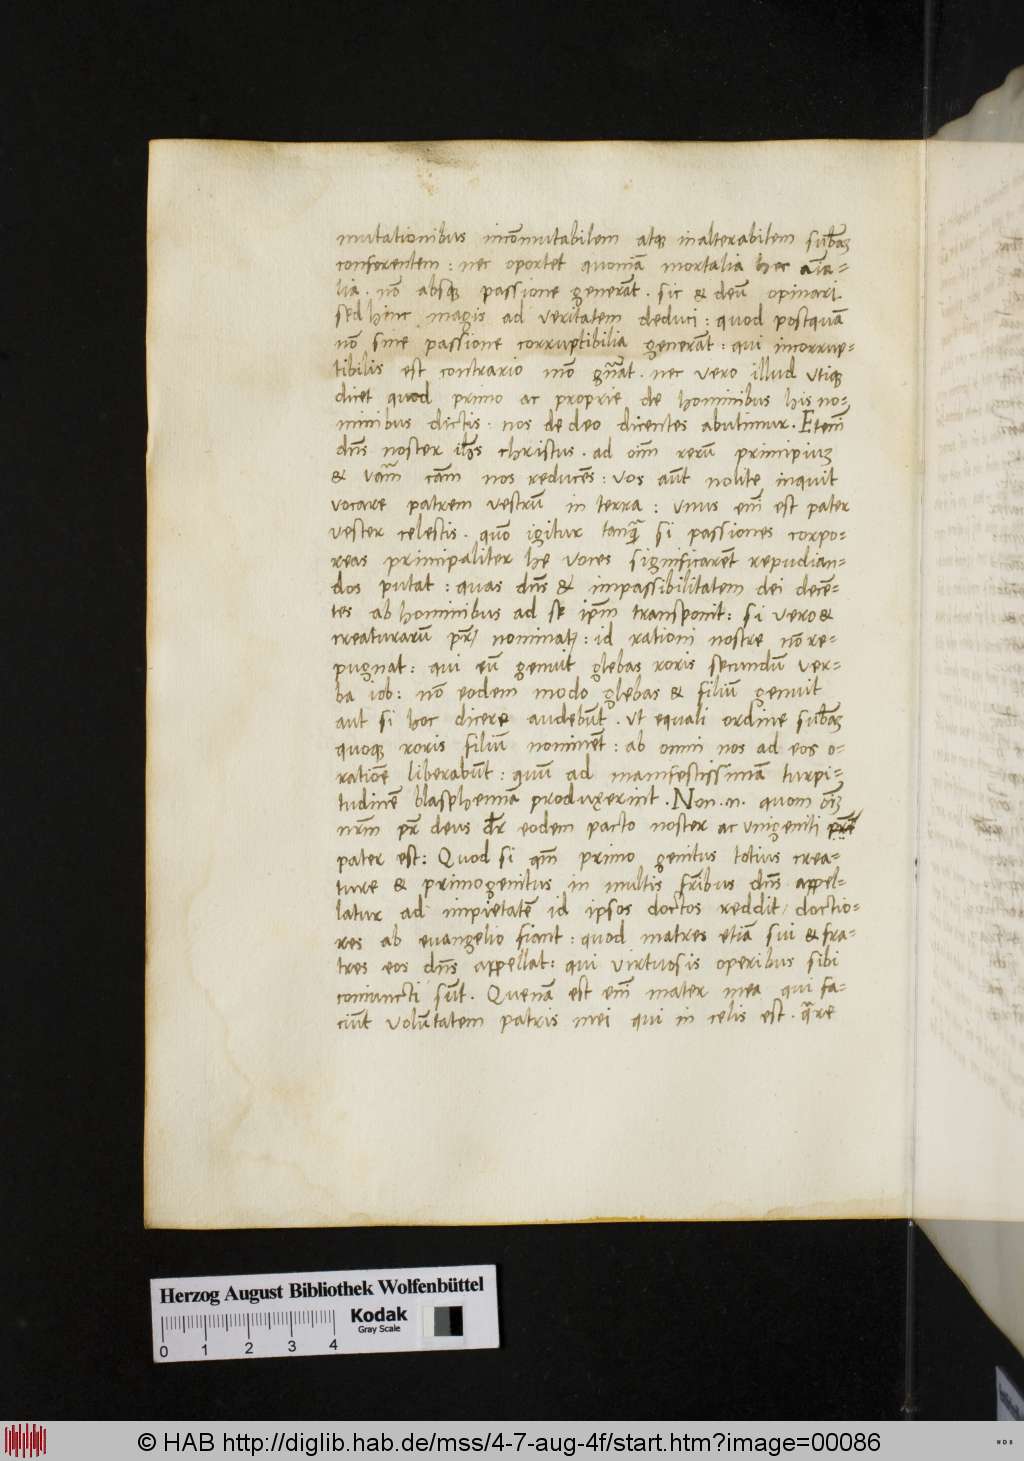 mutationibus incōmutabilem atqꝫ inalterabilem subāꝫ
conferentem : nec oportet quoniā mortalia hec aīa-
lia . nō absqꝫ passione generāt . sic & deū opinari.
sed hinc magis ad veritatem deduci : quod postquā
nō sine passione corruptibilia generāt : qui incorrup-
tibilis est contrario mō gn̄at . nec vero illud vtiqꝫ
dicet quod primo ac proprie de hominibus his no-
minibus dictis . nos de deo dicentes abutimur . Etenī
dn̄s noster ihs̄ christus . ad oīm rerū principiuꝫ
& vām cām nos reducēs : vos aūt nolite inquit
vocare patrem vestrū in terra : vnus enī est pater
vester celestis . quō igitur tanqꝫ si passiones corpo-
reas principaliter he voces significarēt repudian-
dos putat : quas dn̄s & impassibilitatem dei decē-
tes ab hominibus ad se ip̄m transponit : si vero &
creaturarū pr̄ nominatꝛ : id rationi nostre nō re-
pugnat : qui eū genuit glebas roris secundū ver-
ba iob : nō eodem modo glebas & filiū genuit
aut si hoc dicere audebūt . vt equali ordine subāꝫ
quoqꝫ roris filiū nominēt : ab omni nos ad eos o-
ratiōe liberabūt : quū ad manifestissimā turpi-
tudinē blasphemiā produxerint . Non .n. quom oīꝫ
nr̄m pr̄ deus dr̄ eodem pacto noster ac vnigeniti pr̄e
pater est : Quod si qm̄ primo genitus totius crea-
ture & primogenitus in multis fr̄ibus dn̄s appel-
latur ad impietatē id ipsos doctos reddit / doctio-
res ab evangelio fiant : quod matres etiā sui & fra-
tres eos dn̄s appellat : qui virtuosis operibus sibi
coniuncti sūt . Quenā est enī mater mea qui fa-
ciūt volūtatem patris mei qui in celis est . q̄re
Herzog August Bibliothek Wolfenbüttel
0 1 2 3 4
Kodak
Gray Scale
© HAB http://diglib.hab.de/mss/4-7-aug-4f/start.htm?image=00086